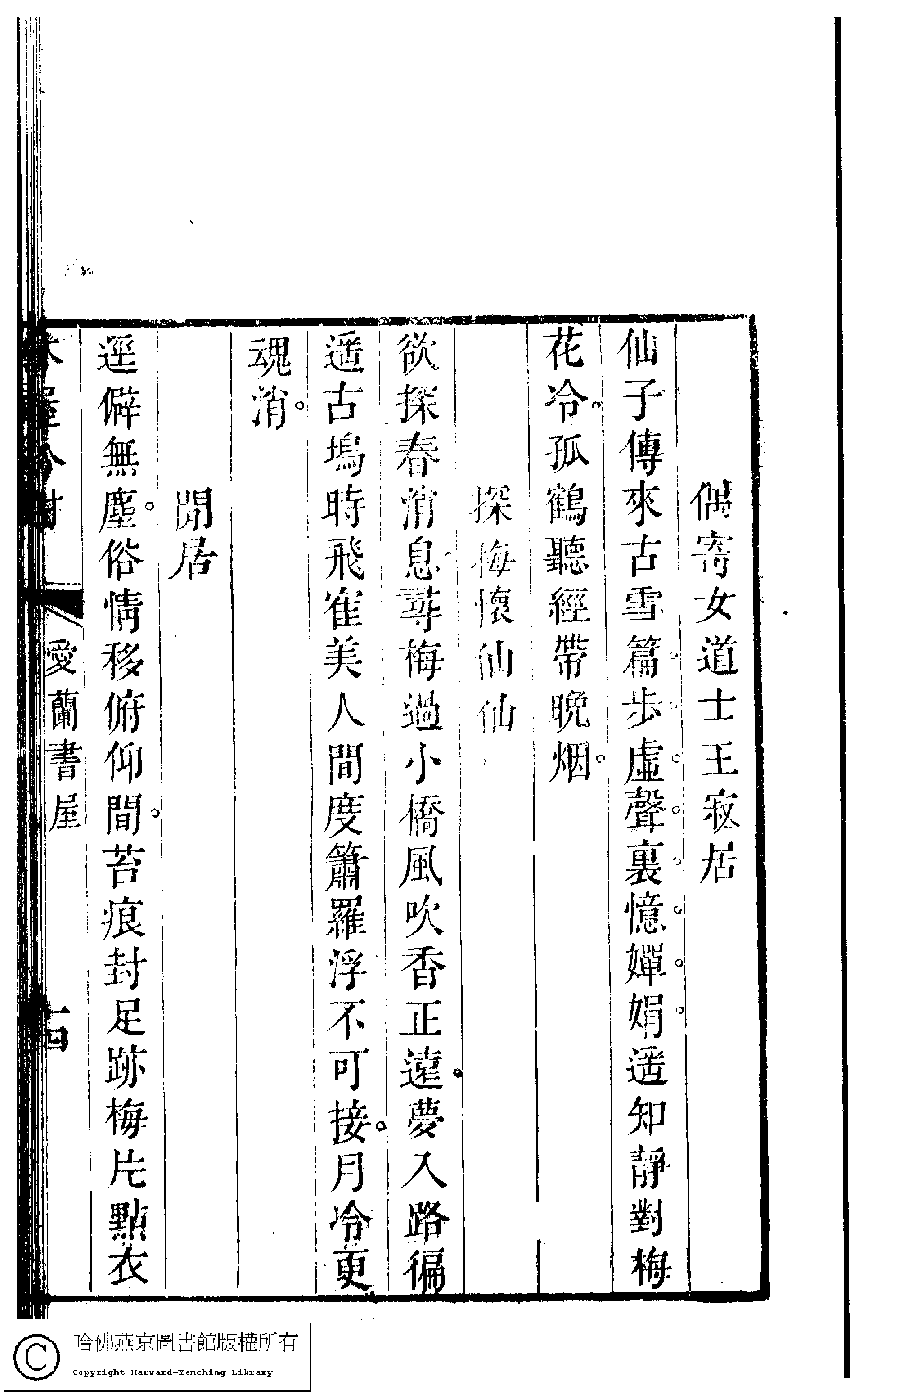 偶寄女道士王寂居
仙子傳來古雪篇步虛聲裏憶嬋娟遥知靜對梅
花冷孤鶴聽經帶晚烟
探梅懷仙仙
欲探春消息尋梅過小橋風吹香正遠夢入路徧
遥古塢時飛隺美人間度簫羅浮不可接月冷更
魂消
閒居
逕僻無塵俗情移俯仰間苔痕封足跡梅片點衣
愛蘭書屋
十四
哈佛燕京圖書館版權所有
Copyright Harvard-Yenching Library